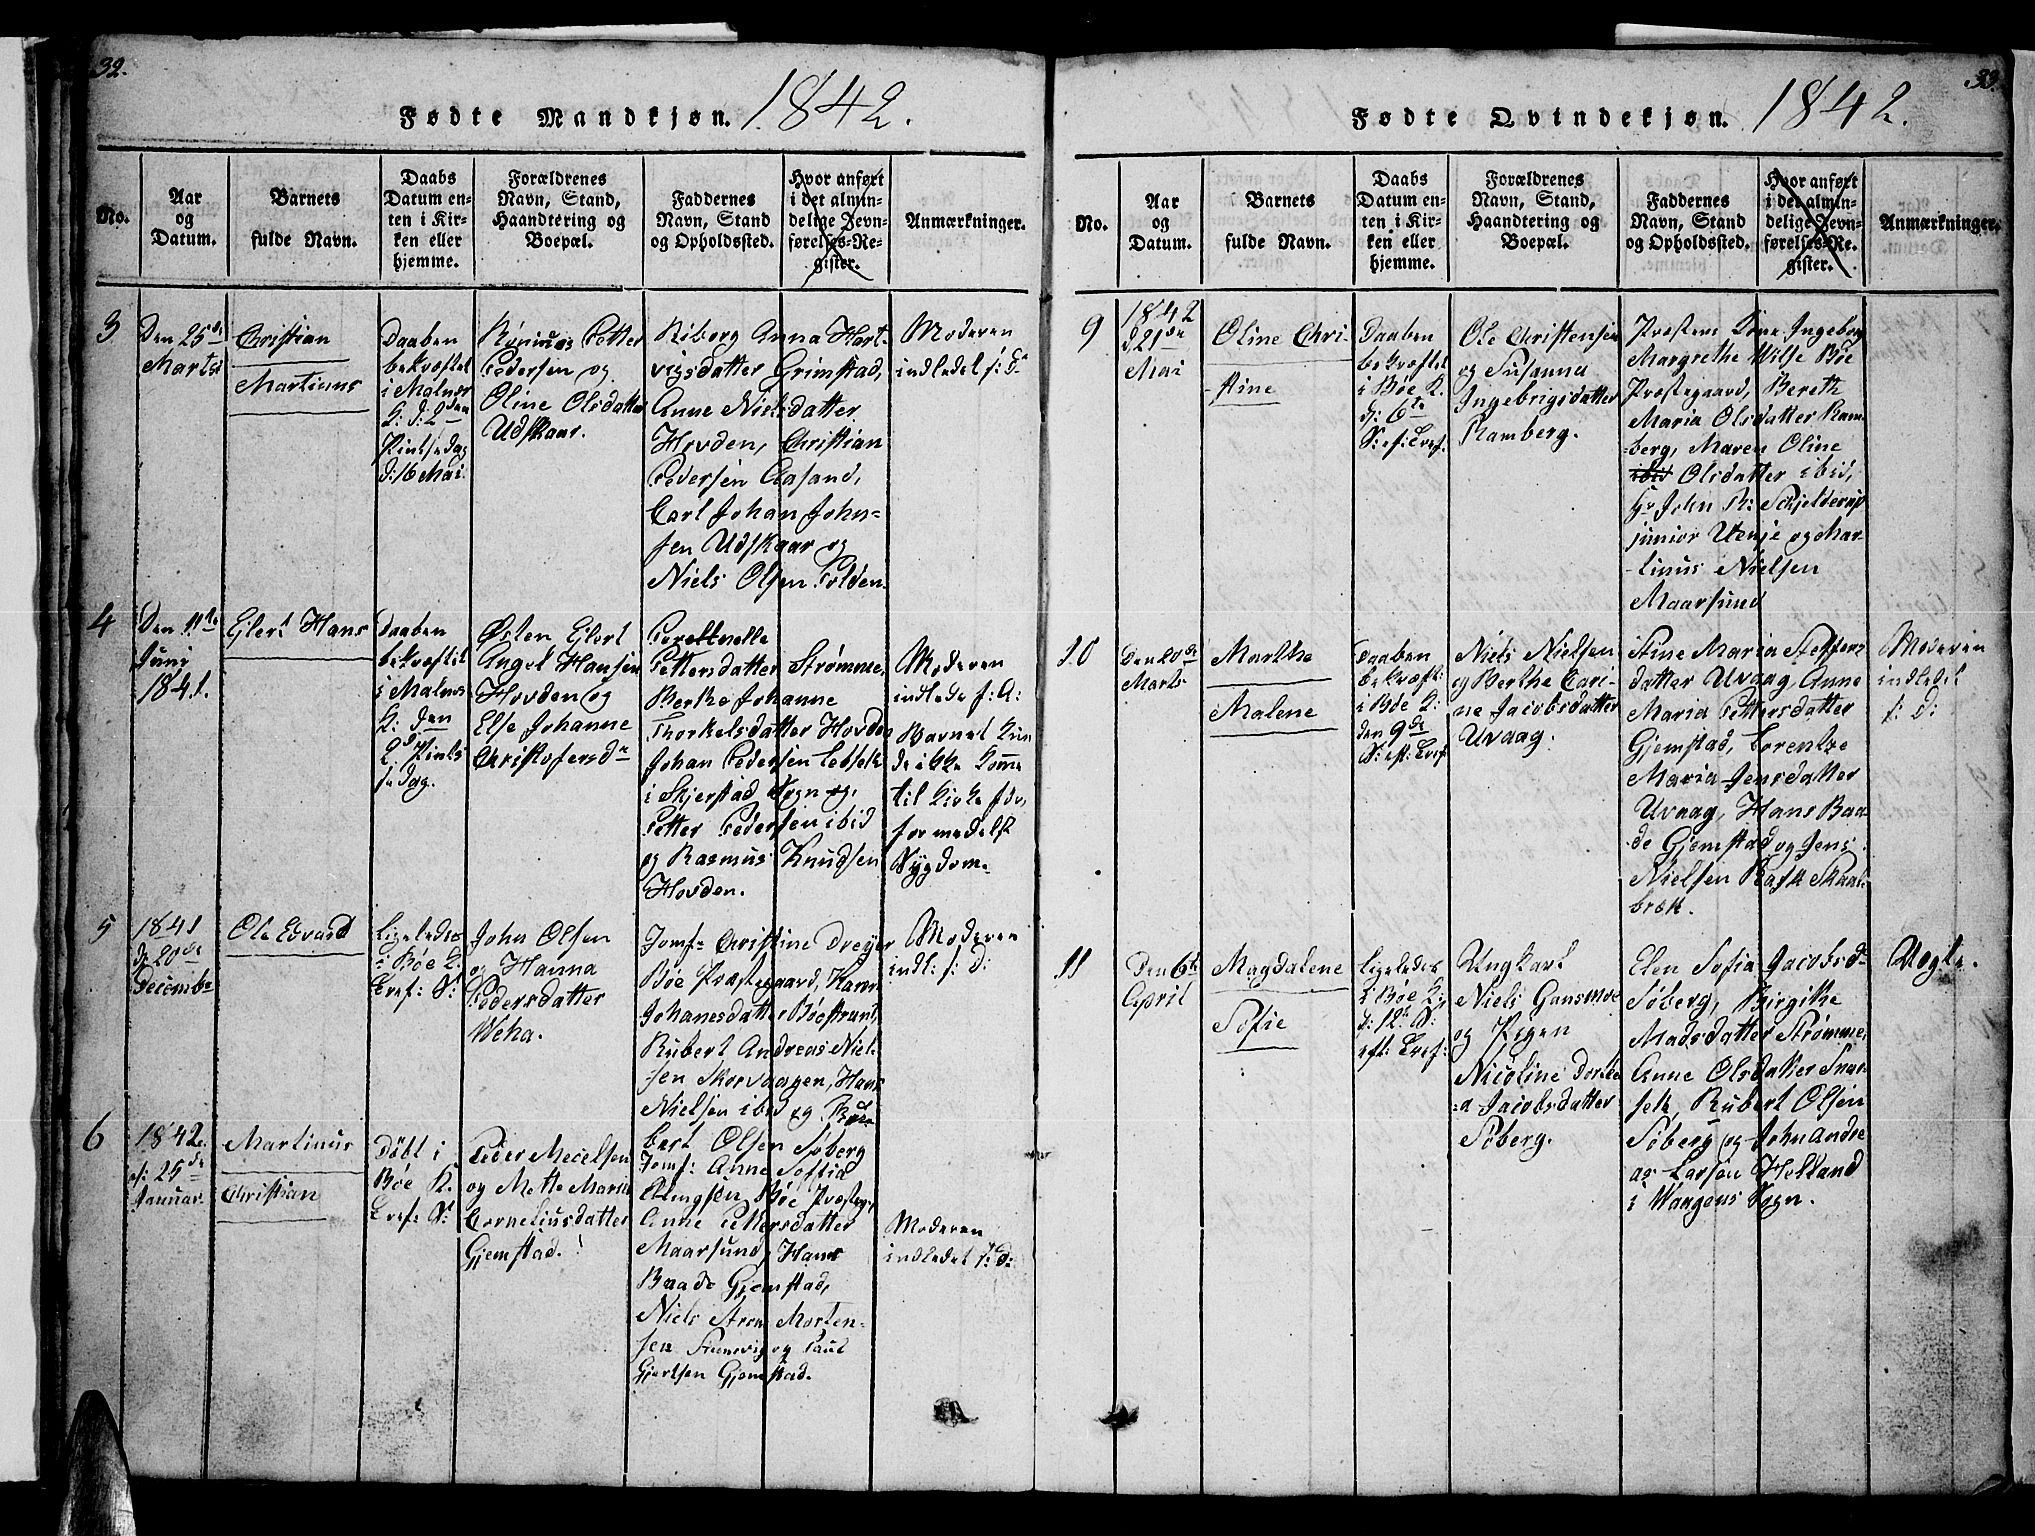 32.
Fødte Mandkjøn. 1842.
No.
Aar
og
Datum.
Barnets
fulde Navn.
Daabs
Datum en-
ten i Kir-
ken eller
hjemme.
Forældrenes
Navn, Stand,
Haandtering og
Boepæl.
Faddernes
Navn, Stand
og Opholdssted.
Hvor anført
i det almin-
delige Jevn-
førelses-Re-
gister.
Anmærkninger.
3
Den 25de
Marts
Christian
Martinus
Daaben
bekræftet
i Malnes
K: d: 2den
Pintsedag
d: 16 Mai.
Petter
Pedersen og
Oline Olsdatter
Udskaar.
Riborg Anna Hart-
vigsdatter Grimstad,
Anne Nielsdatter
Hovden, Christian
Pedersen Aasand,
Carl Johan John-
sen Udskaar og
Niels Olsen Folden
Moderen
indledet s: D:
4
Den 11te
Juni
1841.
Ejlert Hans
Daaben
bekræftet
i Malnes
K: den
2d Pints
sedag.
Østen Ejlert
Angel Hansen
Hovden og
Else Johanne
Christofersdr
Pernelle
Pettersdatter Strømme,
Berthe Johanne
Thorkelsdatter Hovden
Johan Pedersen
i Skjerstad Sogn og
Petter Pedersen ibid
og Rasmus Knudsen
Hovden.
Moderen
indledet s: D:
Barnet kun
de ikke komme
til Kirke før,
formedelst
Sygdom.
5
1841
d: 20de
Decembr
Ole Edvard
Ligeledes
i Bøe K:
S:
John Olsen
og Hanna
Pedersdatter
Weha.
Jomfr Christine Dreyer
Bøe Præstegaard, Karn
Johanesdatter Bøestrand,
Rubert Andreas Niel-
sen Skorvaagen, Hans
Nielsen ibid og
bert Olsen Søberg
Moderen
indl: s: D:
6
1842.
d: 25de
Januar.
Martinus
Christian
Døbt i
Bøe K.
S:
Peder Mecelsen
og Mette Maria
Corneliusdatter
Gjemstad.
Jomf: Anne Sofia
Bøe Præsteg,
Anne Pettersdatter
Maarsund, Hans
Baade Gjemstad,
Niels Aron Morten-
sen og Paul
Gjertsen Gjemstad.
Moderen
indledet s: D:
33.
Fødte Qvindekjøn. 1842.
No.
Aar
og
Datum.
Barnets
fulde Navn.
Daabs
Datum en-
ten i Kir-
ken eller
hjemme.
Forældrenes
Navn, Stand,
Haandtering og
Boepæl.
Faddernes
Navn, Stand
og Opholdssted.
Hvor anført
i det almin-
delige Jevn-
førelses-Re-
gister.
Anmærkninger.
9
1842
d. 21de
Mai
Oline Chri-
stine
Daaben
bekræftet
i Bøe K.
d: 6te
S: ef: Tref.
Ole Christensen
og Susanna
Ingebrigsdatter
Ramberg.
Præstens Kone Ingeborg
Margrethe Wilse Bøe
Præstegaard, Bereth
Maria Olsdatter Ram
-berg, Maren Oline
ibid Olsdatter ibid,
Hr John R: Schjelderup
junior Wenje og Mar-
-tinus Nielsen
Maarsund
10
Den 20de
Marts
Marthe
Malene
Daaben
bekræft:
i Bøe K:
den 9de
S: eft: Tref
Niels Nielsen
og Berthe Cari-
ne Jacobsdatter
Uvaag.
Stine Maria Steffens
datter Uvaag, Anne
Maria Pettersdatter
Gjemstad, Lorentze
Maria Jensdatter
Uvaag, Hans Baa-
de Gjemstad og Jens
Nielsen Rask Skaal-
bræk.
Moderen
indledet
s: D:
11
Den 6te
April
Magdalene
Sofie
Ligeledes
i Bøe K:
d: 12te S:
eft: Tref:
Ungkarl
Niels Gaasmoe
og Pigen
Nicoline Dorthe
a Jacobsdatter
Søberg.
Elen Sofia Jacobsdr
Søberg, Birgithe
Madsdatter Strømme,
Anne Olsdatter
Rubert Olsen
Søberg og John Andre
as Larsen Holland
i Waagens Sogn.
Uægte.